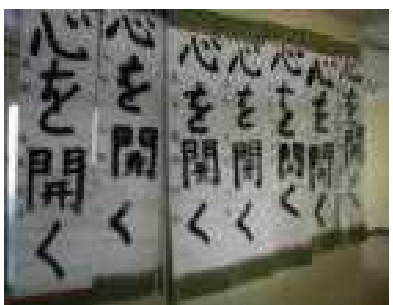 心を開く
心を開く
心を開く
心を開く
心を開く
心を開く
心を開く